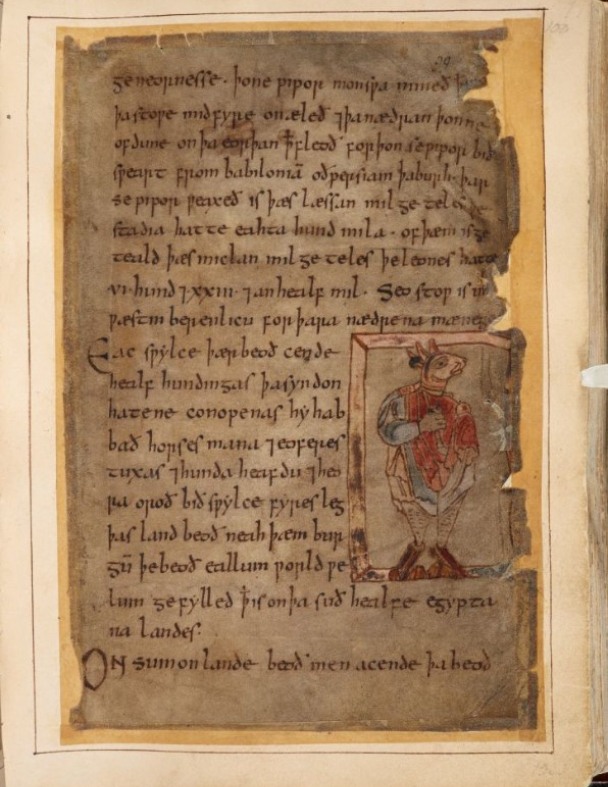 geneornesse · þone pipor mon sƿa nimeð þ
þa stoƿe mid fyre onæleð ⁊ þa nædran þonne
of dune on þa eorþan ꝥ fleoð for þon se pipor bið
sƿeart from babiloniā oð persiam þa burh · þær
se pipor ƿeaxeð is þæs læssan mil geteles
stadia hatte eahta hund mila · of þæm is ge
teald þæs miclan mil geteles þe leones hatte
vi · hund ⁊ xxiii · ⁊ an healf mil · Seo stoƿ is un
ƿæstm berenlicu for þara nædrena mæneg
Eac sƿylce þær beoð cende
healf hundingas þa syndon
hatene conopenas hy hab
bað horses mana ⁊ eoferes
tuxas ⁊ hunda heafdu ⁊ heo
ra oroð bið sƿylce fyres leg
þas land beoð neah þæm bur
gū þe beoð eallum ƿorld ƿe
lum gefylled ꝥ is on þa suð healfe egypta
na landes ·
ON sumon lande beoð men acende þa beoð